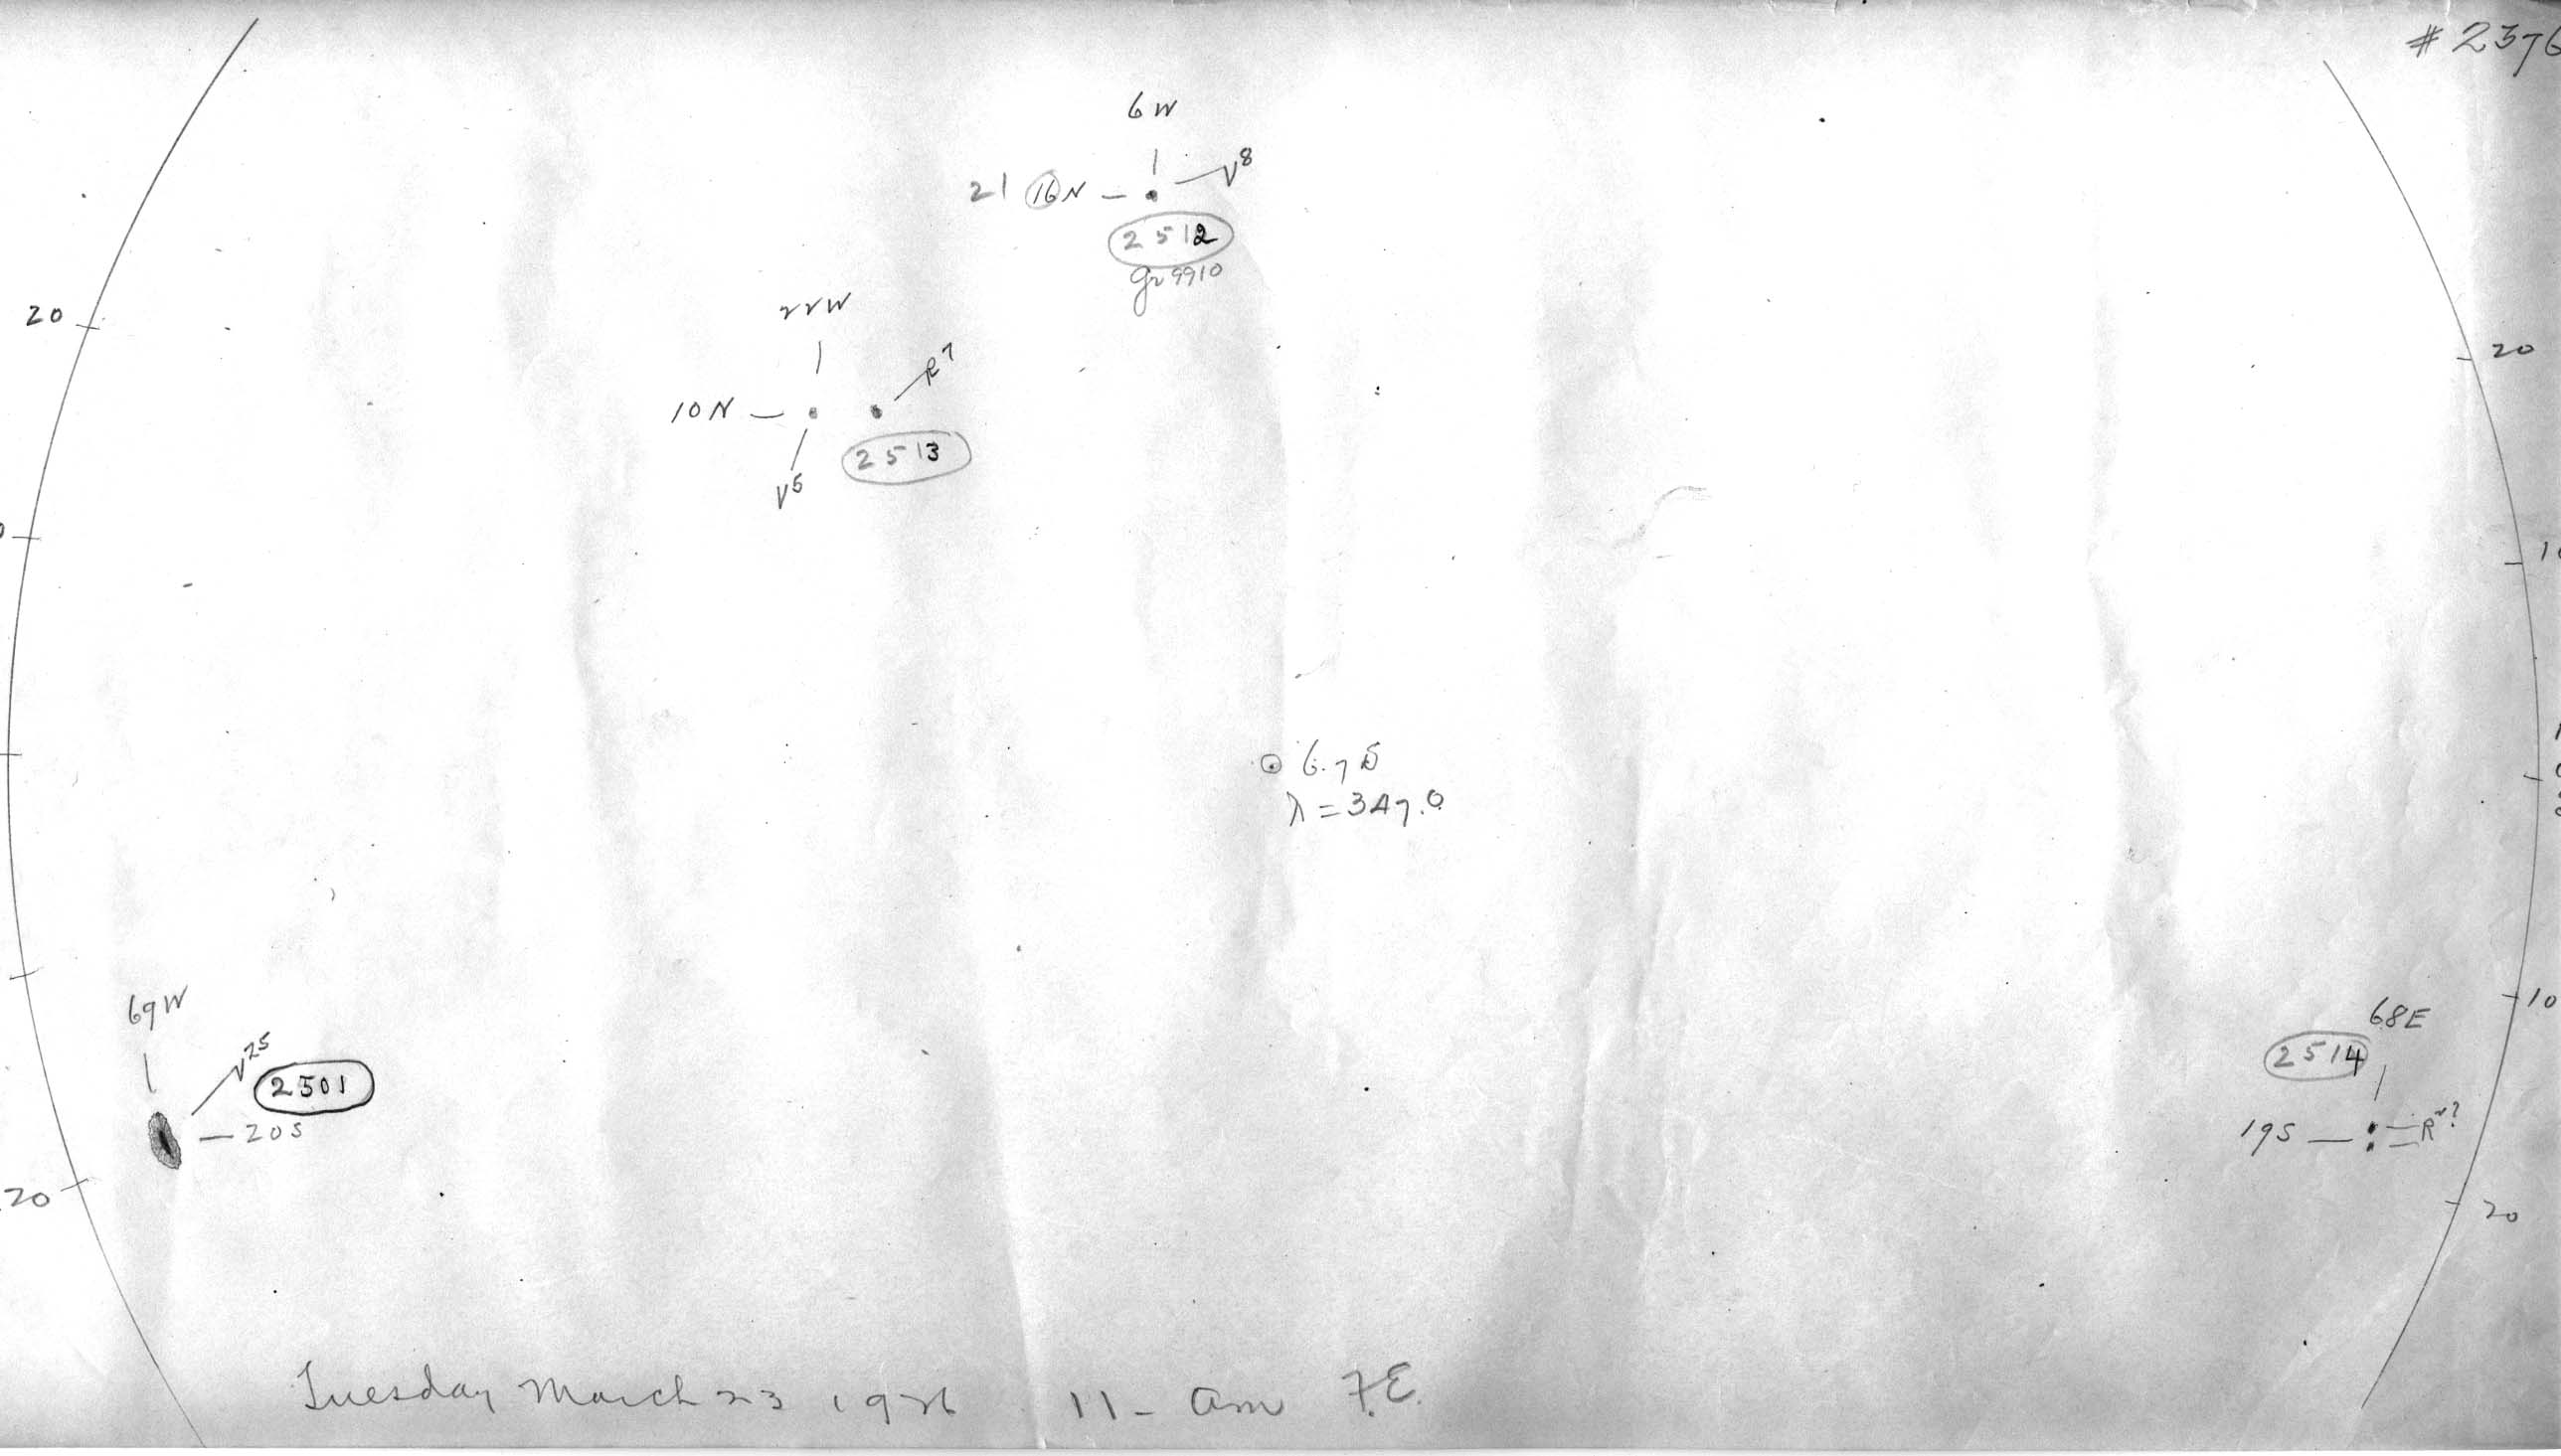 #2376
6W
21 16N — V8
2512
Gr 9910
20
22W
R7
20
10N —
2513
V5
10
6.7 S
λ=347.0
69W
V25
2501
— 20S
10
68E
2514
19S — R2?
20
20
Tuesday March 23 1926 11- am F.E.